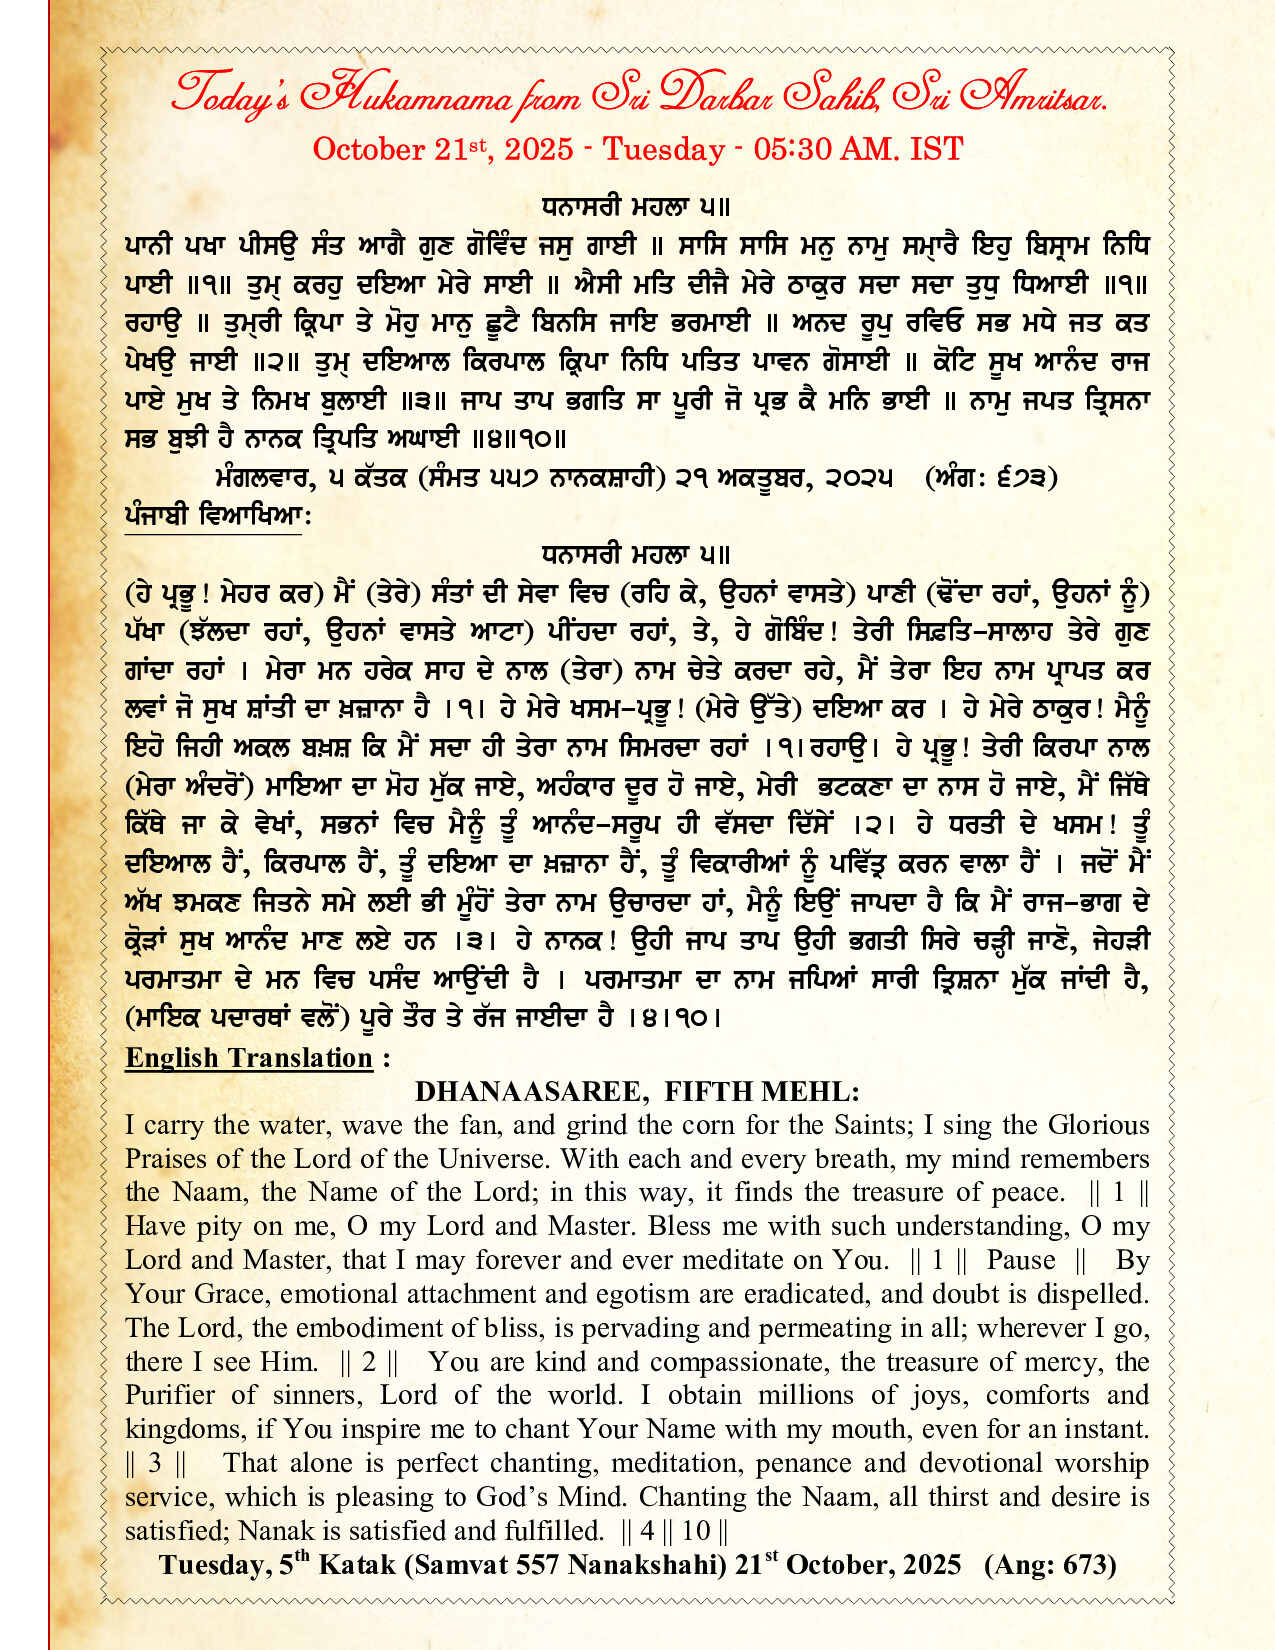 Today's Hukamnama from Sri Darbar Sahib, Sri Amritsar.
October 21st, 2025 - Tuesday - 05:30 AM. IST
ਧਨਾਸਰੀ ਮਹਲਾ ੫॥
ਪਾਨੀ ਪਖਾ ਪੀਸਉ ਸੰਤ ਆਗੈ ਗੁਣ ਗੋਵਿੰਦ ਜਸੁ ਗਾਈ ॥ ਸਾਸਿ ਸਾਸਿ ਮਨੁ ਨਾਮੁ ਸਮ੍ਹਾਰੈ ਇਹੁ ਬਿਸ੍ਰਾਮ ਨਿਧਿ
ਪਾਈ ॥੧॥ ਤੁਮ੍ਹ ਕਰਹੁ ਦਇਆ ਮੇਰੇ ਸਾਈ ॥ ਐਸੀ ਮਤਿ ਦੀਜੈ ਮੇਰੇ ਠਾਕੁਰ ਸਦਾ ਸਦਾ ਤੁਧੁ ਧਿਆਈ ॥੧॥
ਰਹਾਉ ॥ ਤੁਮ੍ਹਰੀ ਕ੍ਰਿਪਾ ਤੇ ਮੋਹੁ ਮਾਨੁ ਛੂਟੈ ਬਿਨਸਿ ਜਾਇ ਭਰਮਾਈ ॥ ਅਨਦ ਰੂਪੁ ਰਵਿਓ ਸਭ ਮਧੇ ਜਤ ਕਤ
ਪੇਖਉ ਜਾਈ ॥੨॥ ਤੁਮ੍ਹ ਦਇਆਲ ਕਿਰਪਾਲ ਕ੍ਰਿਪਾ ਨਿਧਿ ਪਤਿਤ ਪਾਵਨ ਗੋਸਾਈ ॥ ਕੋਟਿ ਸੂਖ ਆਨੰਦ ਰਾਜ
ਪਾਏ ਮੁਖ ਤੇ ਨਿਮਖ ਬੁਲਾਈ ॥੩॥ ਜਾਪ ਤਾਪ ਭਗਤਿ ਸਾ ਪੂਰੀ ਜੋ ਪ੍ਰਭ ਕੈ ਮਨਿ ਭਾਈ ॥ ਨਾਮੁ ਜਪਤ ਤ੍ਰਿਸਨਾ
ਸਭ ਬੁਝੀ ਹੈ ਨਾਨਕ ਤ੍ਰਿਪਤਿ ਅਘਾਈ ॥੪॥੧੦॥
ਮੰਗਲਵਾਰ, ੫ ਕੱਤਕ (ਸੰਮਤ ੫੫੭ ਨਾਨਕਸ਼ਾਹੀ) ੨੧ ਅਕਤੂਬਰ, ੨੦੨੫ (ਅੰਗ: ੬੭੩)
ਪੰਜਾਬੀ ਵਿਆਖਿਆ:
ਧਨਾਸਰੀ ਮਹਲਾ ੫॥
(ਹੇ ਪ੍ਰਭੂ! ਮੇਹਰ ਕਰ) ਮੈਂ (ਤੇਰੇ) ਸੰਤਾਂ ਦੀ ਸੇਵਾ ਵਿਚ (ਰਹਿ ਕੇ, ਉਹਨਾਂ ਵਾਸਤੇ) ਪਾਣੀ (ਢੋਂਦਾ ਰਹਾਂ, ਉਹਨਾਂ ਨੂੰ)
ਪੱਖਾ (ਝੱਲਦਾ ਰਹਾਂ, ਉਹਨਾਂ ਵਾਸਤੇ ਆਟਾ) ਪੀਂਹਦਾ ਰਹਾਂ, ਤੇ, ਹੇ ਗੋਬਿੰਦ! ਤੇਰੀ ਸਿਫ਼ਤਿ-ਸਾਲਾਹ ਤੇਰੇ ਗੁਣ
ਗਾਂਦਾ ਰਹਾਂ । ਮੇਰਾ ਮਨ ਹਰੇਕ ਸਾਹ ਦੇ ਨਾਲ (ਤੇਰਾ) ਨਾਮ ਚੇਤੇ ਕਰਦਾ ਰਹੇ, ਮੈਂ ਤੇਰਾ ਇਹ ਨਾਮ ਪ੍ਰਾਪਤ ਕਰ
ਲਵਾਂ ਜੋ ਸੁਖ ਸ਼ਾਂਤੀ ਦਾ ਖ਼ਜ਼ਾਨਾ ਹੈ ।੧। ਹੇ ਮੇਰੇ ਖਸਮ-ਪ੍ਰਭੂ! (ਮੇਰੇ ਉੱਤੇ) ਦਇਆ ਕਰ । ਹੇ ਮੇਰੇ ਠਾਕੁਰ! ਮੈਨੂੰ
ਇਹੋ ਜਿਹੀ ਅਕਲ ਬਖ਼ਸ਼ ਕਿ ਮੈਂ ਸਦਾ ਹੀ ਤੇਰਾ ਨਾਮ ਸਿਮਰਦਾ ਰਹਾਂ ।੧।ਰਹਾਉ। ਹੇ ਪ੍ਰਭੂ! ਤੇਰੀ ਕਿਰਪਾ ਨਾਲ
(ਮੇਰਾ ਅੰਦਰੋਂ) ਮਾਇਆ ਦਾ ਮੋਹ ਮੁੱਕ ਜਾਏ, ਅਹੰਕਾਰ ਦੂਰ ਹੋ ਜਾਏ, ਮੇਰੀ ਭਟਕਣਾ ਦਾ ਨਾਸ ਹੋ ਜਾਏ, ਮੈਂ ਜਿੱਥੇ
ਕਿੱਥੇ ਜਾ ਕੇ ਵੇਖਾਂ, ਸਭਨਾਂ ਵਿਚ ਮੈਨੂੰ ਤੂੰ ਆਨੰਦ-ਸਰੂਪ ਹੀ ਵੱਸਦਾ ਦਿੱਸੇਂ ।੨। ਹੇ ਧਰਤੀ ਦੇ ਖਸਮ! ਤੂੰ
ਦਇਆਲ ਹੈਂ, ਕਿਰਪਾਲ ਹੈਂ, ਤੂੰ ਦਇਆ ਦਾ ਖ਼ਜ਼ਾਨਾ ਹੈਂ, ਤੂੰ ਵਿਕਾਰੀਆਂ ਨੂੰ ਪਵਿੱਤ੍ਰ ਕਰਨ ਵਾਲਾ ਹੈਂ । ਜਦੋਂ ਮੈਂ
ਅੱਖ ਝਮਕਣ ਜਿਤਨੇ ਸਮੇ ਲਈ ਭੀ ਮੂੰਹੋਂ ਤੇਰਾ ਨਾਮ ਉਚਾਰਦਾ ਹਾਂ, ਮੈਨੂੰ ਇਉਂ ਜਾਪਦਾ ਹੈ ਕਿ ਮੈਂ ਰਾਜ-ਭਾਗ ਦੇ
ਕ੍ਰੋੜਾਂ ਸੁਖ ਆਨੰਦ ਮਾਣ ਲਏ ਹਨ ।੩। ਹੇ ਨਾਨਕ! ਉਹੀ ਜਾਪ ਤਾਪ ਉਹੀ ਭਗਤੀ ਸਿਰੇ ਚੜ੍ਹੀ ਜਾਣੋ, ਜੇਹੜੀ
ਪਰਮਾਤਮਾ ਦੇ ਮਨ ਵਿਚ ਪਸੰਦ ਆਉਂਦੀ ਹੈ । ਪਰਮਾਤਮਾ ਦਾ ਨਾਮ ਜਪਿਆਂ ਸਾਰੀ ਤ੍ਰਿਸ਼ਨਾ ਮੁੱਕ ਜਾਂਦੀ ਹੈ,
(ਮਾਇਕ ਪਦਾਰਥਾਂ ਵਲੋਂ) ਪੂਰੇ ਤੌਰ ਤੇ ਰੱਜ ਜਾਈਦਾ ਹੈ ।੪।੧੦।
English Translation :
DHANAASAREE, FIFTH MEHL:
I carry the water, wave the fan, and grind the corn for the Saints; I sing the Glorious
Praises of the Lord of the Universe. With each and every breath, my mind remembers
the Naam, the Name of the Lord; in this way, it finds the treasure of peace. || 1 ||
Have pity on me, O my Lord and Master. Bless me with such understanding, O my
Lord and Master, that I may forever and ever meditate on You. || 1 || Pause || By
Your Grace, emotional attachment and egotism are eradicated, and doubt is dispelled.
The Lord, the embodiment of bliss, is pervading and permeating in all; wherever I go,
there I see Him. || 2 || You are kind and compassionate, the treasure of mercy, the
Purifier of sinners, Lord of the world. I obtain millions of joys, comforts and
kingdoms, if You inspire me to chant Your Name with my mouth, even for an instant.
|| 3 || That alone is perfect chanting, meditation, penance and devotional worship
service, which is pleasing to God's Mind. Chanting the Naam, all thirst and desire is
satisfied; Nanak is satisfied and fulfilled. || 4 || 10 ||
Tuesday, 5th Katak (Samvat 557 Nanakshahi) 21st October, 2025 (Ang: 673)